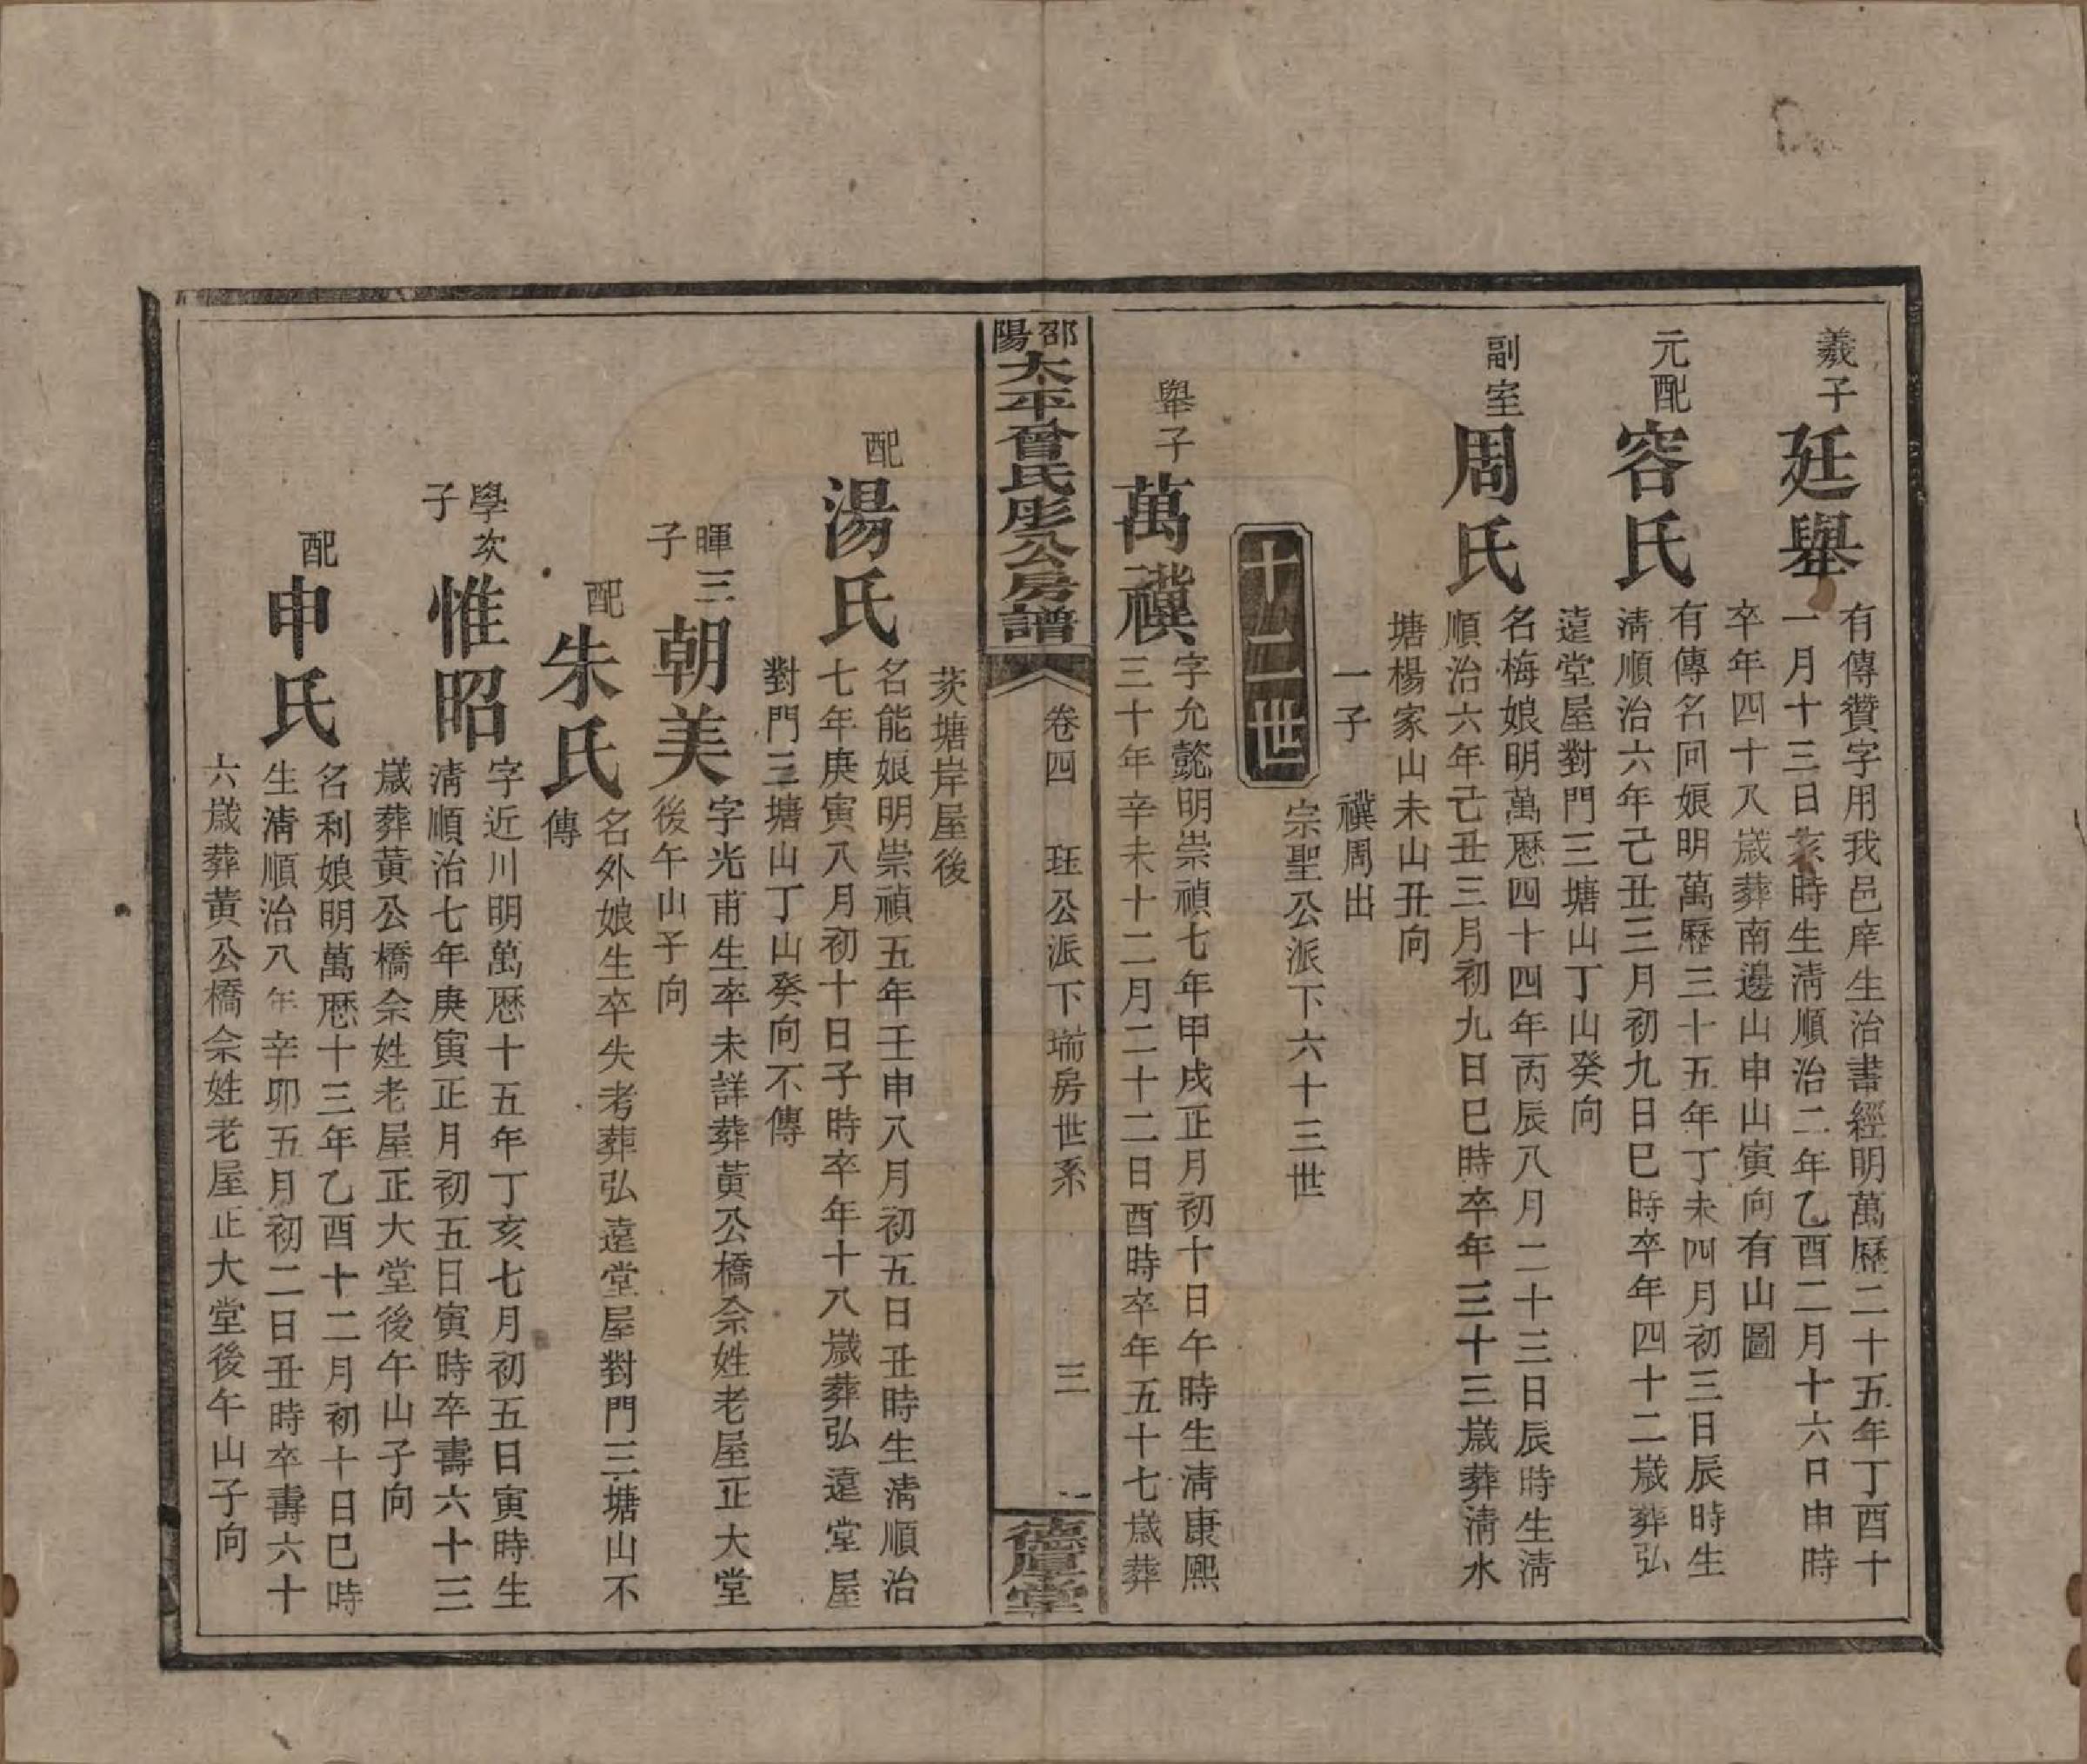 羲子廷舉
有傳贊字用我邑庠生治書經明萬歷二十五年丁酉十
一月十三日亥時生淸順治二年乙酉二月十六日申時
卒年四十八歲葬南邊山申山寅向有山圖
元配容氏
有傳名回娘明萬歷三十五年丁未四月初三日辰時生
淸順治六年己丑三月初九日巳時卒年四十二歲葬弘
遠堂屋對門三塘山丁山癸向
副室周氏
名梅娘明萬歷四十四年丙辰八月二十三日辰時生淸
順治六年己丑三月初九日巳時卒年三十三歲葬淸水
塘楊家山未山丑向
一子 禥周出
十二世
宗聖公派下六十三世
舉子萬禥
字允懿明崇禎七年甲戌正月初十日午時生淸康熙
三十年辛未十二月二十二日酉時卒年五十七歲葬
邵陽太平曾氏彪公房譜
卷四 玨公派下瑞房世系 三
德厚堂
茨塘岸屋後
配湯氏
名能娘明崇禎五年壬申八月初五日丑時生淸順治
七年庚寅八月初十日子時卒年十八歲葬弘遠堂屋
對門三塘山丁山癸向不傳
暉三子朝美
字光甫生卒未詳葬黃公橋佘姓老屋正大堂
後午山子向
配朱氏
名外娘生卒失考葬弘遠堂屋對門三塘山不
傳
學次子惟昭
字近川明萬歷十五年丁亥七月初五日寅時生
淸順治七年庚寅正月初五日寅時卒壽六十三
歲葬黃公橋佘姓老屋正大堂後午山子向
配申氏
名利娘明萬歷十三年乙酉十二月初十日巳時
生淸順治八年辛卯五月初二日丑時卒壽六十
六歲葬黃公橋佘姓老屋正大堂後午山子向